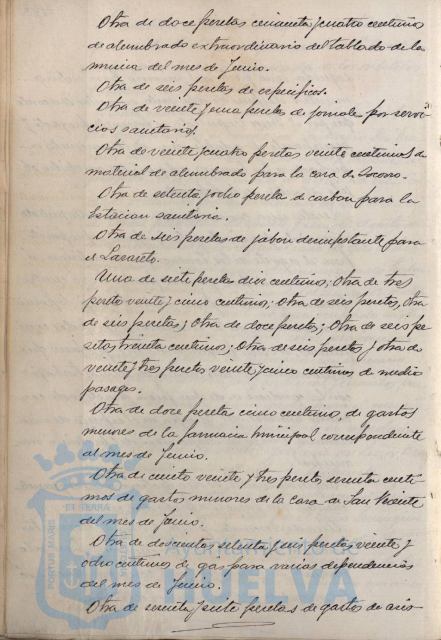 Otra de doce pesetas cincuenta y cuatro centimos
de alumbrado extraordinario del tablado de la
musica del mes de Junio.
Otra de seis pesetas de especificos.
Otra de veinte y una pesetas de jornales por servi-
cios sanitarios.
Otra de veinte y cuatro pesetas veinte centimos de
material de alumbrado para la casa de Socorro.
Otra de setenta y ocho pesetas de carbon para la
Estacion sanitaria.
Otra de seis pesetas de jabon desinfectante para
el Lazareto.
Una de siete pesetas diez centimos; Otra de tres
pesetas veinte y cinco centimos; Otra de seis pesetas, Otra
de seis pesetas; Otra de doce pesetas; Otra de seis pe-
setas, treinta centimos; Otra de seis pesetas y otra de
veinte y tres pesetas veinte y cinco centimos de medio
pasages.
Otra de doce pesetas cinco centimos, de gastos
menores de la farmacia municipal correspondiente
al mes de Junio.
Otra de ciento veinte y tres pesetas, sesenta centi-
mos de gastos menores de la casa de San Vicente
del mes de Junio.
Otra de doscientas setenta y seis pesetas veinte y
ocho centimos de gas para varias dependencias
del mes de Junio.
Otra de y siete pesetas de gastos de
PORTUS MARIS
ET TERRÆ
HUELVA